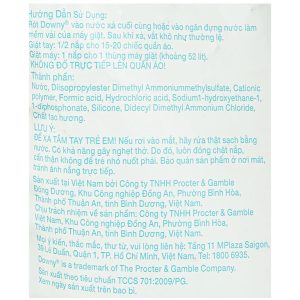 Hướng Dẫn Sử Dụng:
Rót Downy® vào nước xả cuối cùng hoặc vào ngăn đựng nước làm
mềm vải của máy giặt. Sau khi xả, vắt khô như thường lệ.
Giặt tay: 1/2 nắp cho 15-20 chiếc quần áo.
Giặt máy: 1 nắp cho 1 thùng máy giặt (khoảng 52 lít).
KHÔNG ĐỔ TRỰC TIẾP LÊN QUẦN ÁO!
Thành phần:
Nước, Diisopropylester Dimethyl Ammoniummethylsulfate, Cationic
polymer, Formic acid, Hydrochloric acid, Sodium1-hydroxyethane-1,
1-diphosphonate, Silicone, Didecyl Dimethyl Ammonium Chloride,
Chất tạo hương.
LƯU Ý:
ĐỂ XA TẦM TAY TRẺ EM! Nếu rơi vào mắt, hãy rửa thật sạch bằng
nước. Có khả năng gây nghẹt thở. Do đó, luôn đóng chặt nắp,
cẩn thận không để trẻ nhỏ nuốt phải. Bảo quản sản phẩm ở nơi mát,
tránh ánh nắng trực tiếp.
Sản xuất tại Việt Nam bởi Công ty TNHH Procter & Gamble
Đông Dương, Khu Công nghiệp Đồng An, Phường Bình Hòa,
Thành phố Thuận An, tỉnh Bình Dương, Việt Nam.
Chịu trách nhiệm về sản phẩm: Công ty TNHH Procter & Gamble
Đông Dương, Khu Công nghiệp Đồng An, Phường Bình Hòa,
Thành phố Thuận An, tỉnh Bình Dương, Việt Nam.
Mọi ý kiến, thắc mắc, thư từ, vui lòng liên hệ: Tầng 11 MPlaza Saigon,
39 Lê Duẩn, Quận 1, TP. Hồ Chí Minh, Việt Nam, Tel: 1800 6935.
Downy® is a trademark of The Procter & Gamble Company.
Sản xuất theo tiêu chuẩn TCCS 701:2009/PG.
Xem ngày sản xuất trên bao bì.